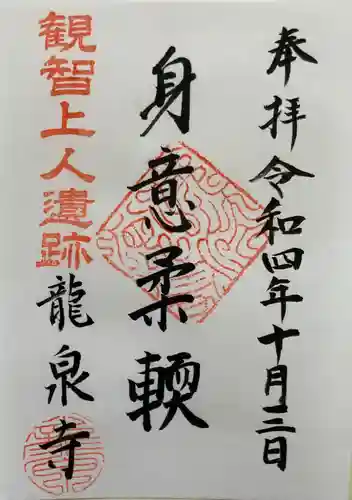 奉拝 令和四年十月三日
身意柔軟
観智上人遺跡
龍泉寺